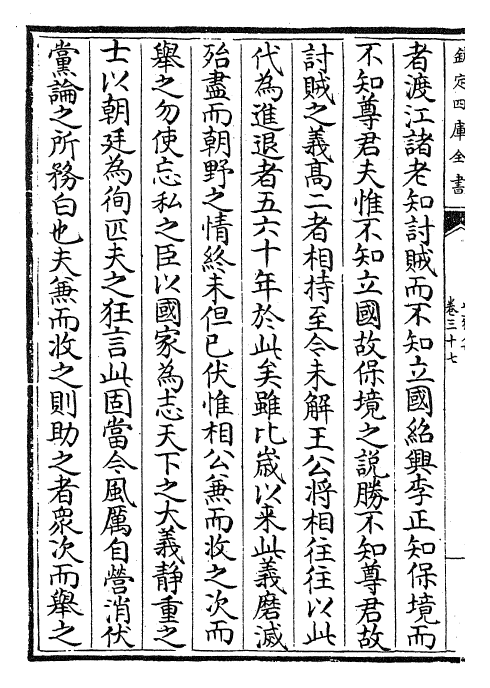 欽定四庫全書
卷三十七
者渡江諸老知討賊而不知立國紹興李正知保境而
不知尊君夫惟不知立國故保境之説勝不知尊君故
討賊之義髙二者相持至今未解王公將相往往以此
代為進退者五六十年於此矣雖比嵗以来此義磨滅
殆盡而朝野之情終未但已伏惟相公兼而收之次而
舉之勿使忘私之臣以國家為志天下之大義静重之
士以朝廷為徇匹夫之狂言此固當今風厲自營消伏
黨論之所務白也夫兼而收之則助之者衆次而舉之